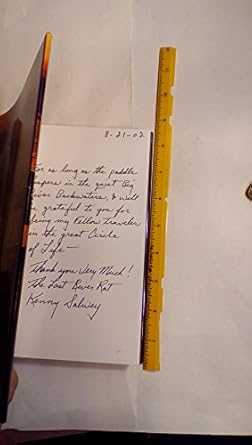 8-21-02
or as long as the paddle
ispers in the quiet Big
iver Backwaters, I will
e grateful to you for
eing my Fellow Traveler
in the great Circle
of Life -
Thank you Very Much!
The Last River Rat
Kenny Salwey